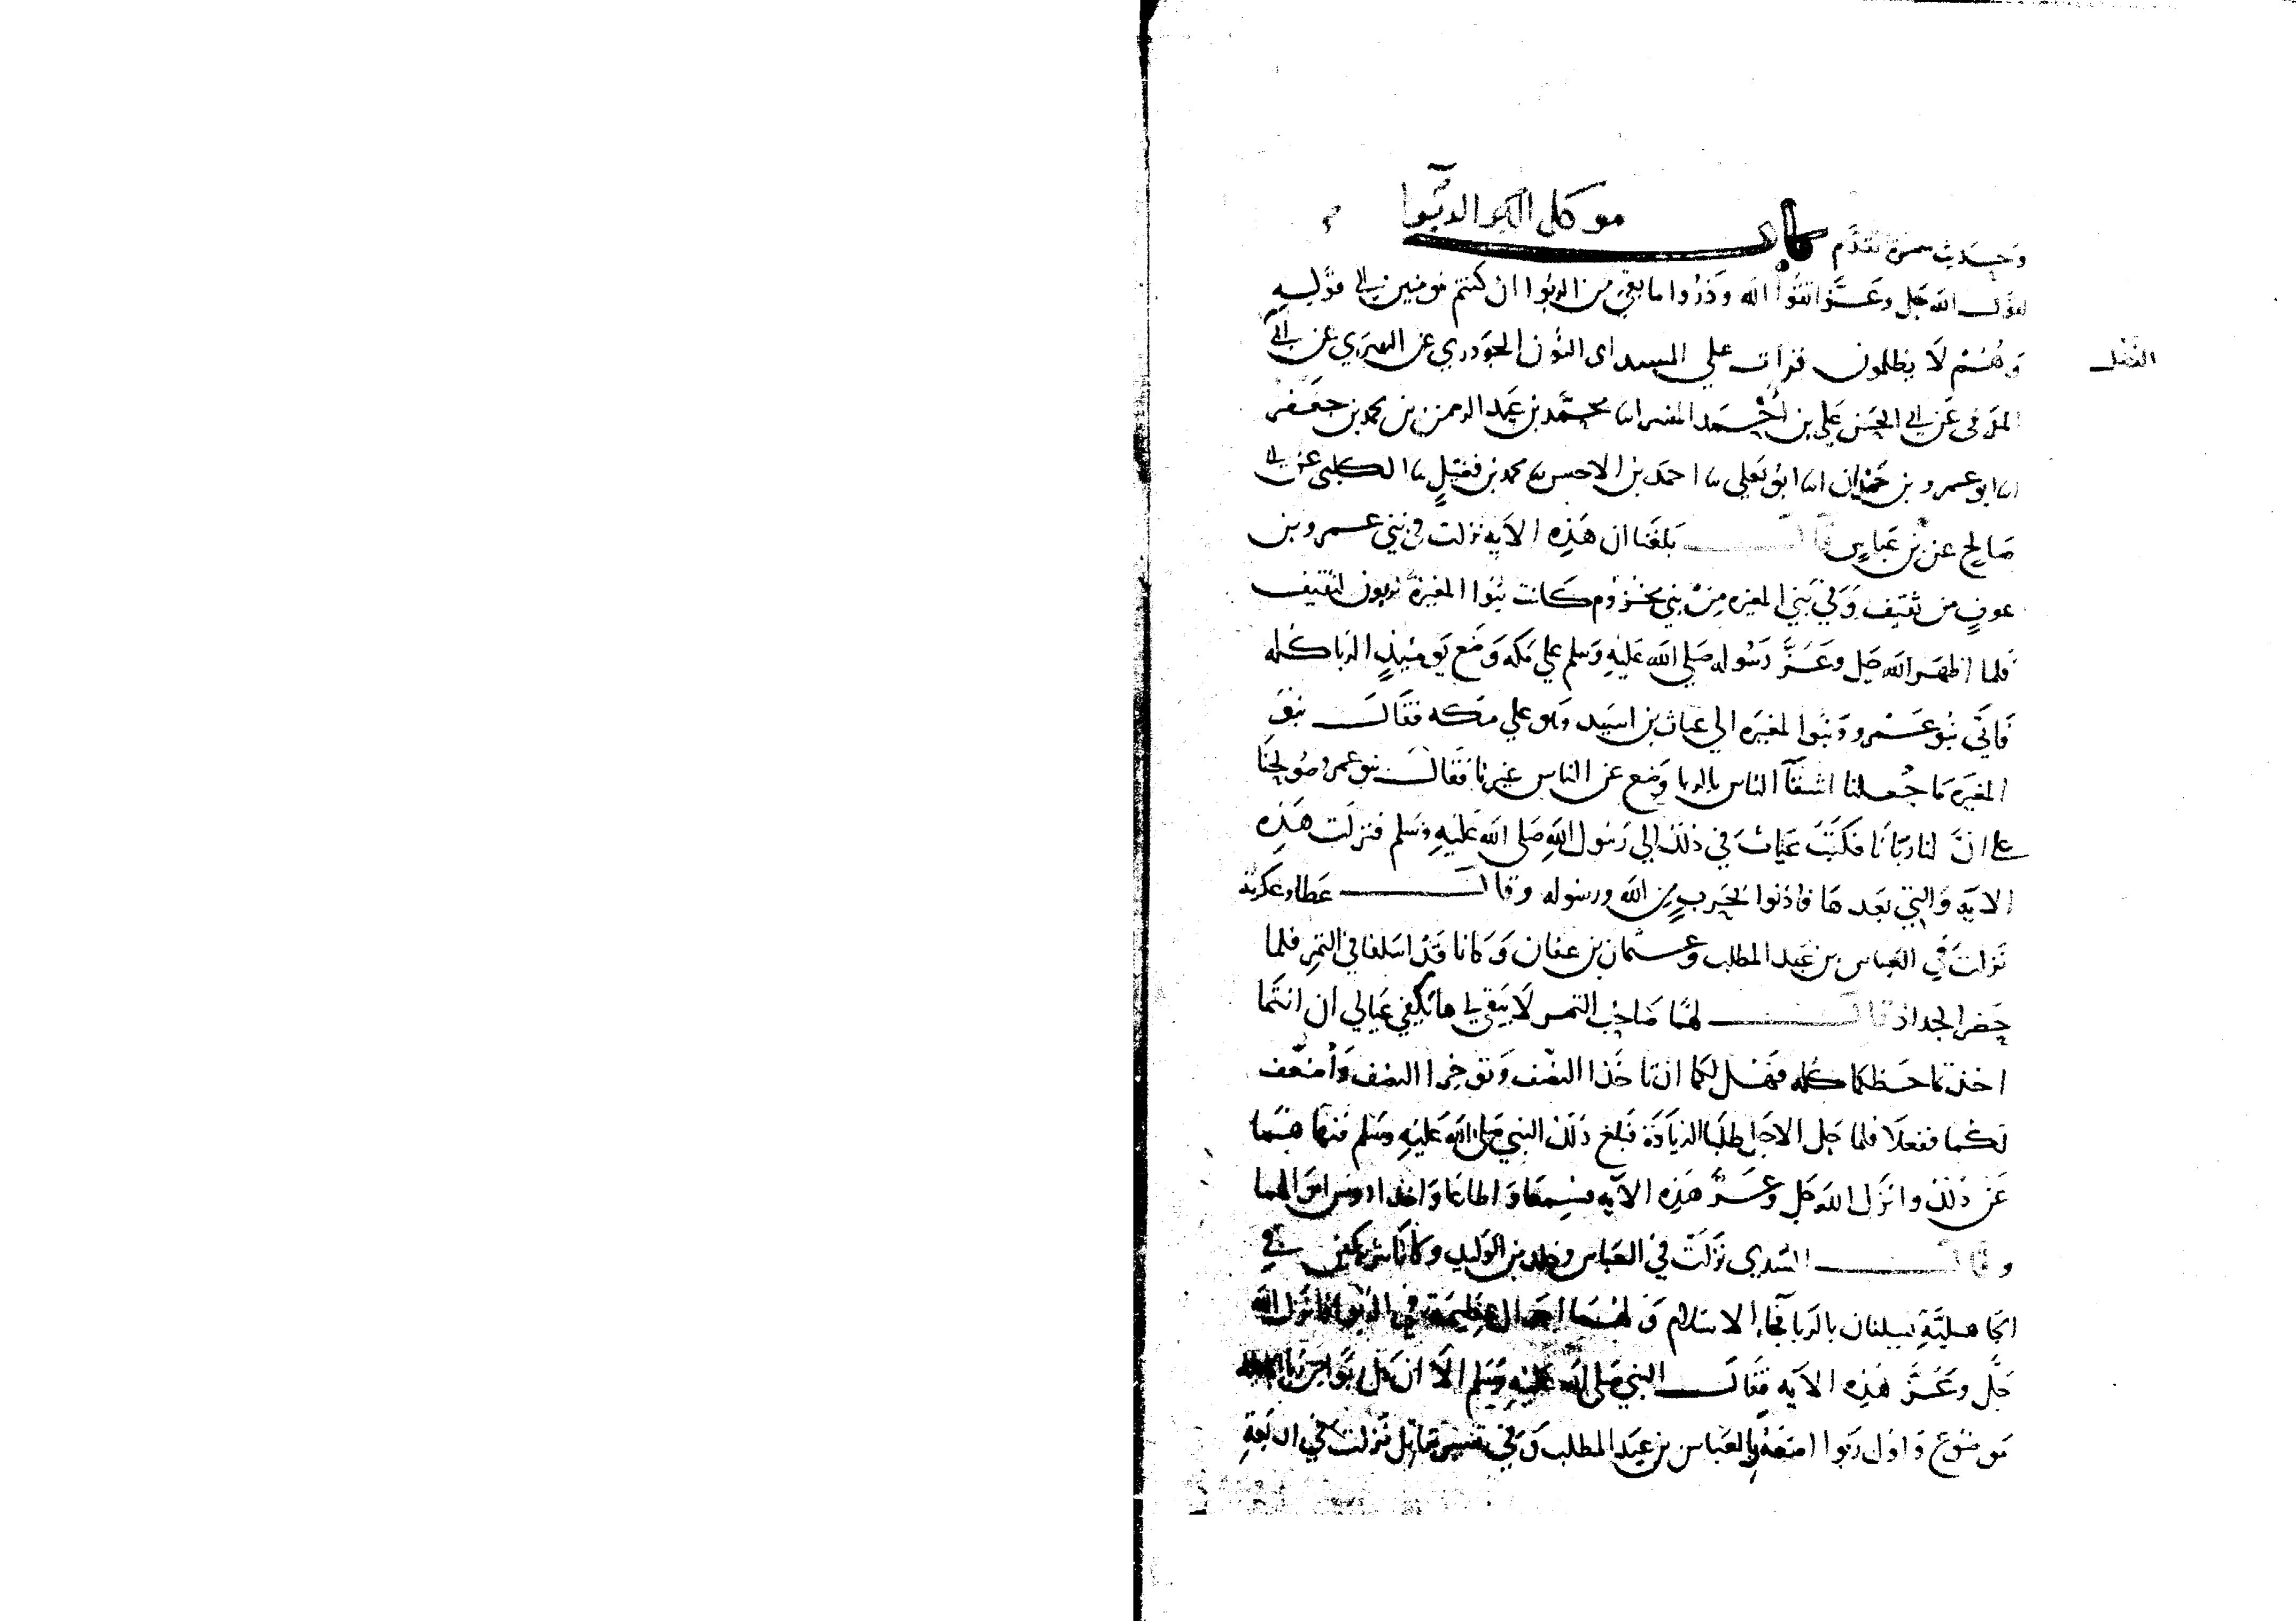 وحديث سمرة تقدم باب موكل الربوا
لقول الله جل وعز اتقوا الله وذروا ما بقي من الربوا ان كنتم مومنين الي قوله
وهم لا يظلمون قرات علي المسند ابي النون عن ابي
الفضل
عن ابي الحسن علي بن احمد المفسر انا محمد بن عبد الرحمن بن محمد بن جعفر
انا ابو عمرو بن حمدان انا ابو يعلي ثنا احمد بن الاحنس ثنا محمد بن فضيل ثنا الكلبي عن ابي
صالح عن بن عباس قال بلغنا ان هذه الايه نزلت في بني عمرو بن
عوف من ثقيف وفي بني المغيره من بني مخزوم كانت بنوا المغيرة يربون لثقيف
فلما اظهر الله جل وعز رسوله صلي الله عليه وسلم علي مكه وضع يوميذ الربا كله
فاتي بنو عمرو وبنوا المغيره الي عتاب بن اسيد وهو علي مكه فقال بنو
المغيره ما جعلنا اشقا الناس بالربا وضع عن الناس غيرنا فقال بنو عمرو صولحنا
علي ان لنا ربانا فكتب عتاب في ذلك الي رسول الله صلي الله عليه وسلم فنزلت هذه
الايه والتي بعدها فاذنوا بحرب من الله ورسوله وقال عطا وعكرمة
نزلت في العباس بن عبد المطلب وعثمان بن عفان وكانا قد اسلفا في التمر فلما
حضر الجداد قال لهما صاحب التمر لا يبقي لي ما يكفي عيالي ان انتما
اخذتما حظكما كله فهل لكما ان تاخذا النصف وتوخرا النصف واضعف
لكما ففعلا فلما حل الاجل طلبا الزيادة فبلغ ذلك النبي صلي الله عليه وسلم فنهاهما
عن ذلك وانزل الله جل وعز هذه الايه فسمعا واطاعا واخذا روس اموالهما
وقال السدي نزلت في العباس وخلد بن الوليد وكانا شريكين في
الجاهلية يسلفان بالربا فجا الاسلام ولهما اموال عظيمة في الربوا فانزل الله
جل وعز هذه الايه فقال النبي صلي الله عليه وسلم الا ان كل ربوا من ربا الجاهلية
موضوع واول ربوا اضعه ربا العباس بن عبد المطلب وفي تفسير مقاتل نزلت في اربعة